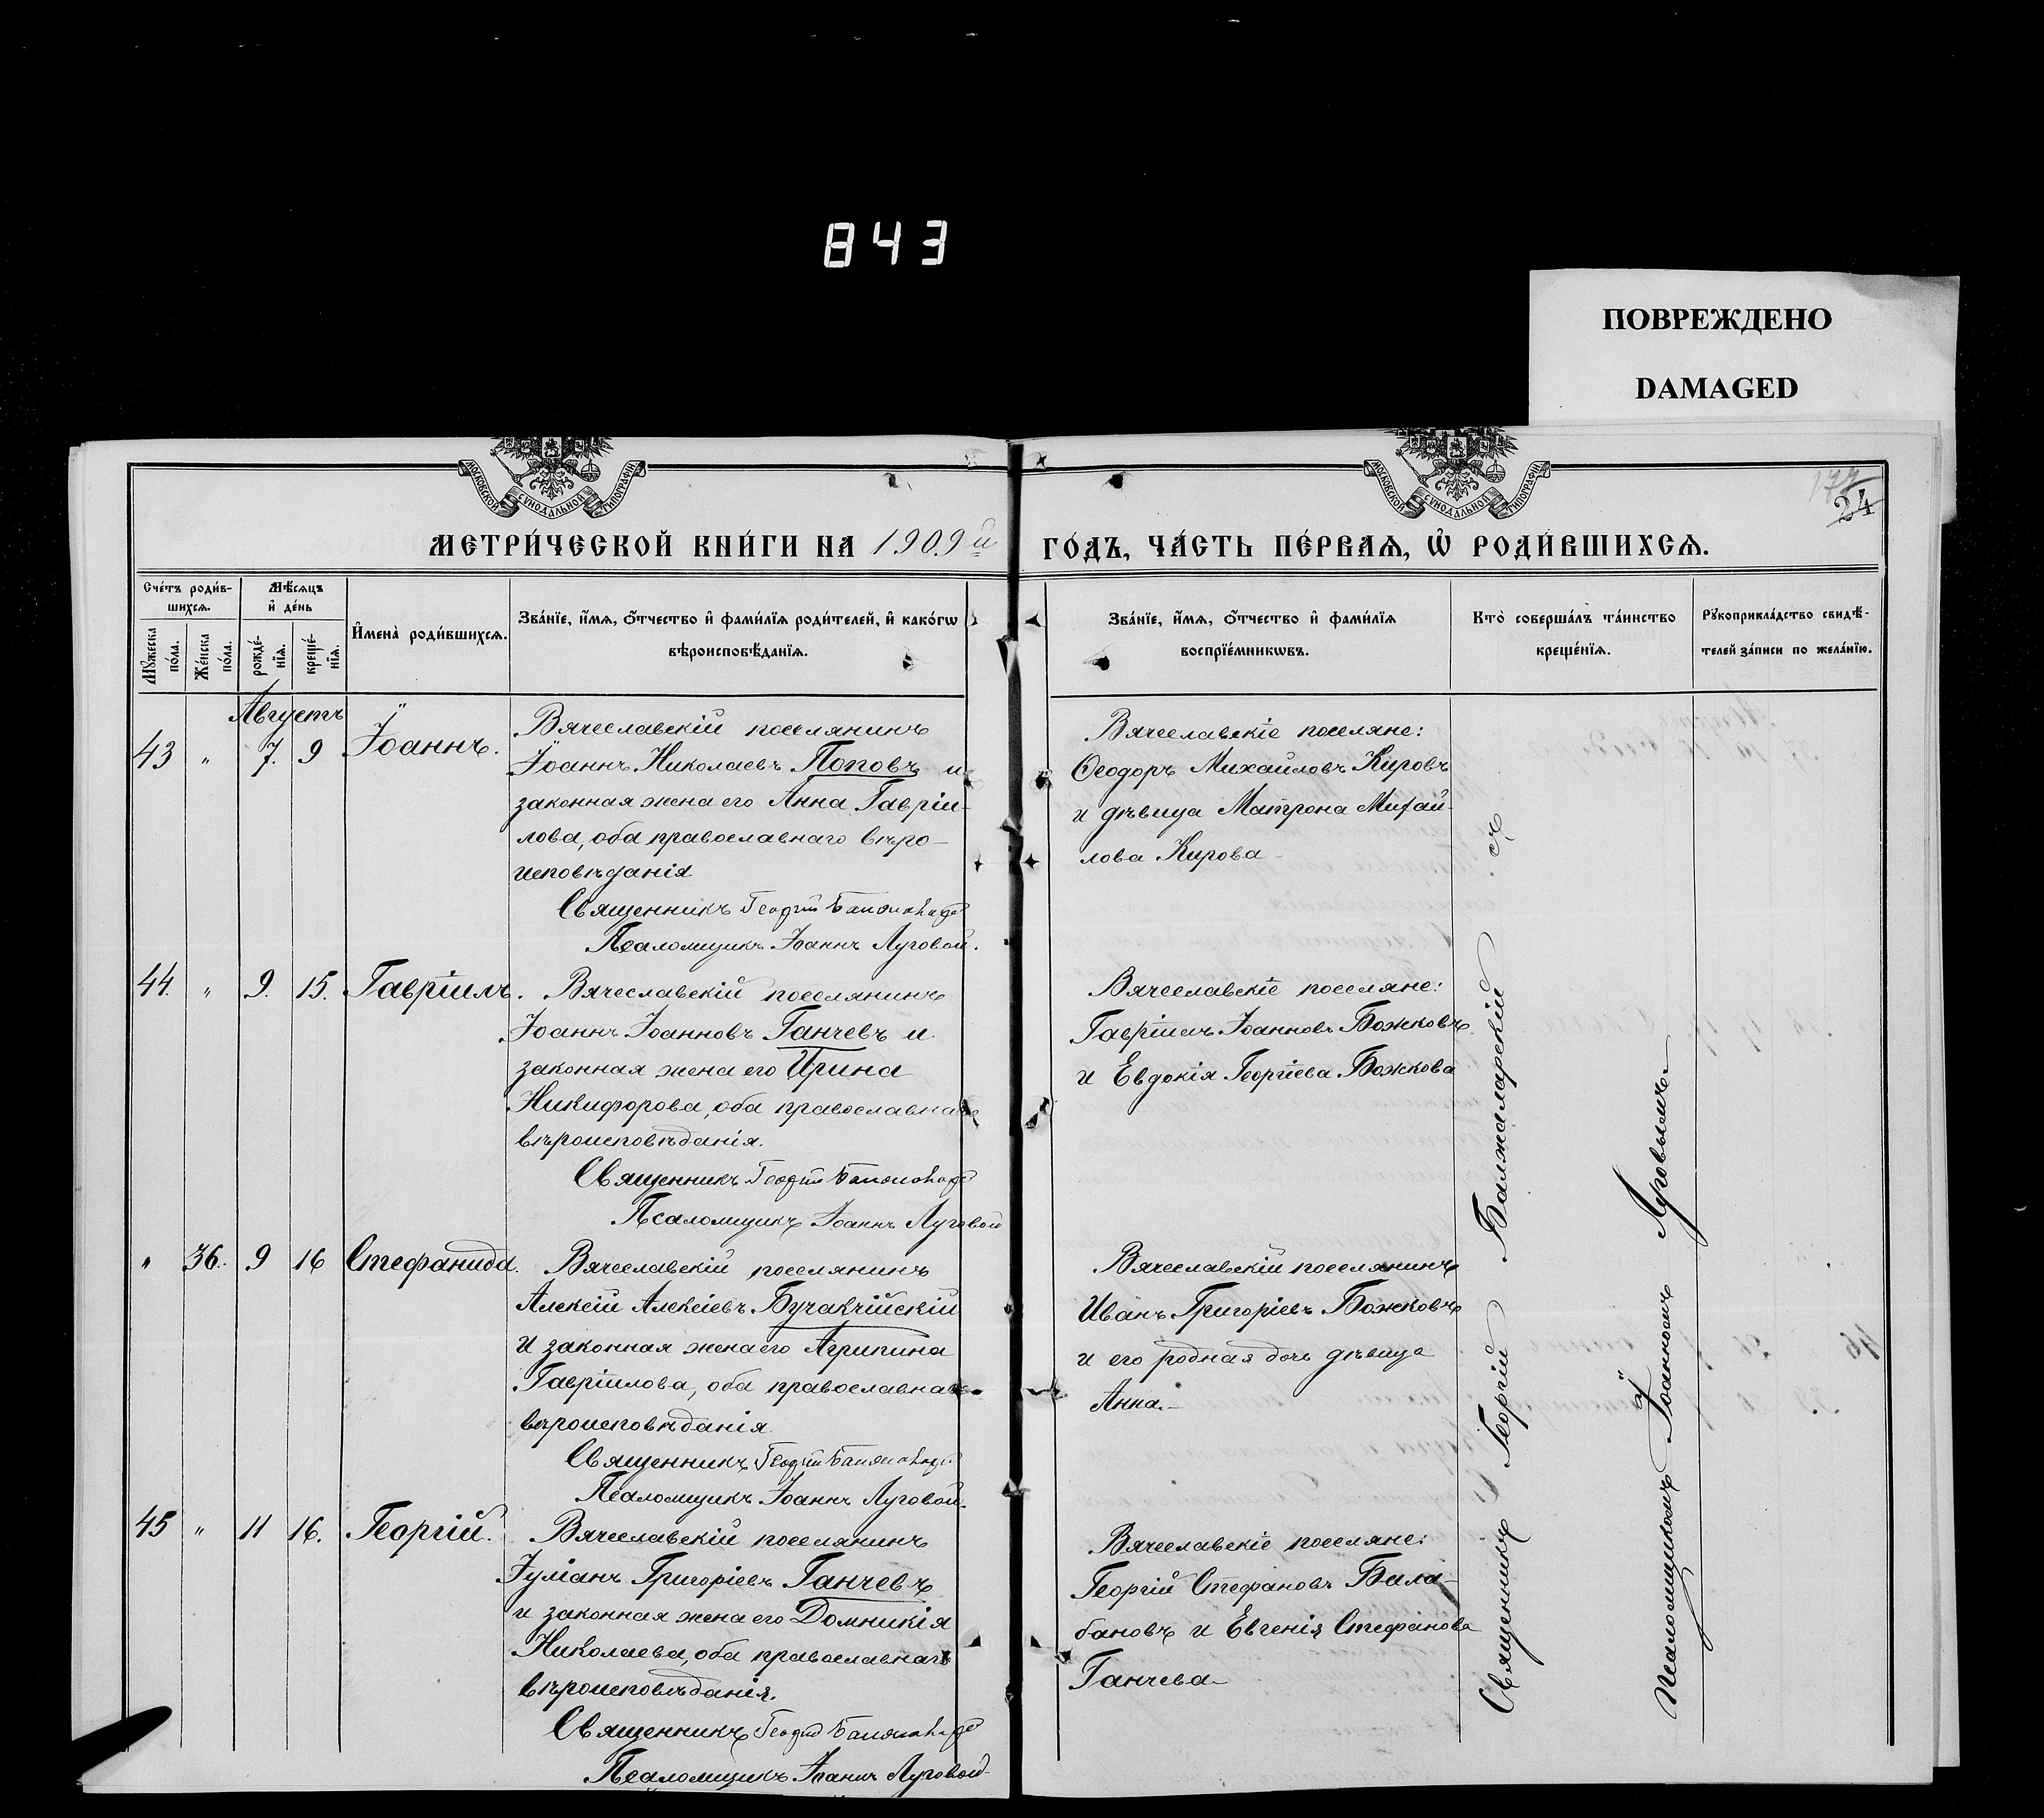 843
ПОВРЕЖДЕНО
DAMAGED
МОСКОВСКОЙ СУНОДАЛЬНОЙ ТИПОГРАФІИ
МОСКОВСКОЙ СУНОДАЛЬНОЙ ТИПОГРАФІИ
177
24
МЕТРИ́ЧЕСКОЙ КНИ́ГИ НА 1909 й
ГО́ДЪ, ЧА́СТЬ ПЕ́РВАѦ, Ѡ҆ РОДИ́ВШИХСѦ.
Сче́тъ роди́в-
шихсѧ.
Мѣ́сѧцъ
и҆ де́нь
Мꙋ́жеска
по́ла.
Же́нска
по́ла.
рожде́-
нїѧ.
креще́-
нїѧ.
И҆мена̀ роди́вшихсѧ.
Зва́нїе, и҆́мѧ, ѻ҆́тчество и҆ фами́лїѧ роди́телей, и҆ како́гѡ
вѣроисповѣ́данїѧ.
Зва́нїе, и҆́мѧ, ѻ҆́тчество и҆ фами́лїѧ
воспрїе́мникѡвъ.
Кто̀ соверша́лъ та́инство
креще́нїѧ.
Рꙋкоприкла́дство свидѣ́-
телей за́писи по жела́нїю.
Августъ
43 " 7. 9 Іоаннъ.
Вячеславскій поселянинъ
Іоаннъ Николаевъ Поповъ и
законная жена его Анна Гавріи-
лова, оба православнаго вѣро-
исповѣданія
Священникъ Георгій
Псаломщикъ Іоаннъ Луговой.
Вячеславскіе поселяне:
Ѳеодоръ Михайловъ Кировъ
и дѣвица Матрона Михай-
лова Кирова
44. " 9. 15. Гавріилъ.
Вячеславскій поселянинъ
Іоаннъ Іоанновъ Ганчевъ и
законная жена его Ирина
Никифорова, оба православнаго
вѣроисповѣданія.
Священникъ Георгій
Псаломщикъ Іоаннъ Луговой
Вячеславскіе поселяне:
Гавріилъ Іоанновъ Божковъ
и Евдокія Георгіева Божкова
" 36. 9 16 Стефанида.
Вячеславскій поселянинъ
Алексій Алексіевъ Бучакчійскій
и законная жена его Агрипина
Гавріилова, оба православнаго
вѣроисповѣданія
Священникъ Георгій
Псаломщикъ Іоаннъ Луговой.
Вячеславскій поселянинъ
Иванъ Григоріевъ Божковъ
и его родная дочь дѣвица
Анна.
45 " 11 16. Георгій.
Вячеславскій поселянинъ
Іуліанъ Григоріевъ Ганчевъ
и законная жена его Домникія
Николаева, оба православнаго
вѣроисповѣданія.
Священникъ Георгій
Псаломщикъ Іоаннъ Луговой
Вячеславскіе поселяне:
Георгій Стефановъ Бала-
бановъ и Евгенія Стефанова
Ганчева
Священникъ Георгій Балжаларскій съ
Псаломщикомъ Іоанномъ Луговымъ.